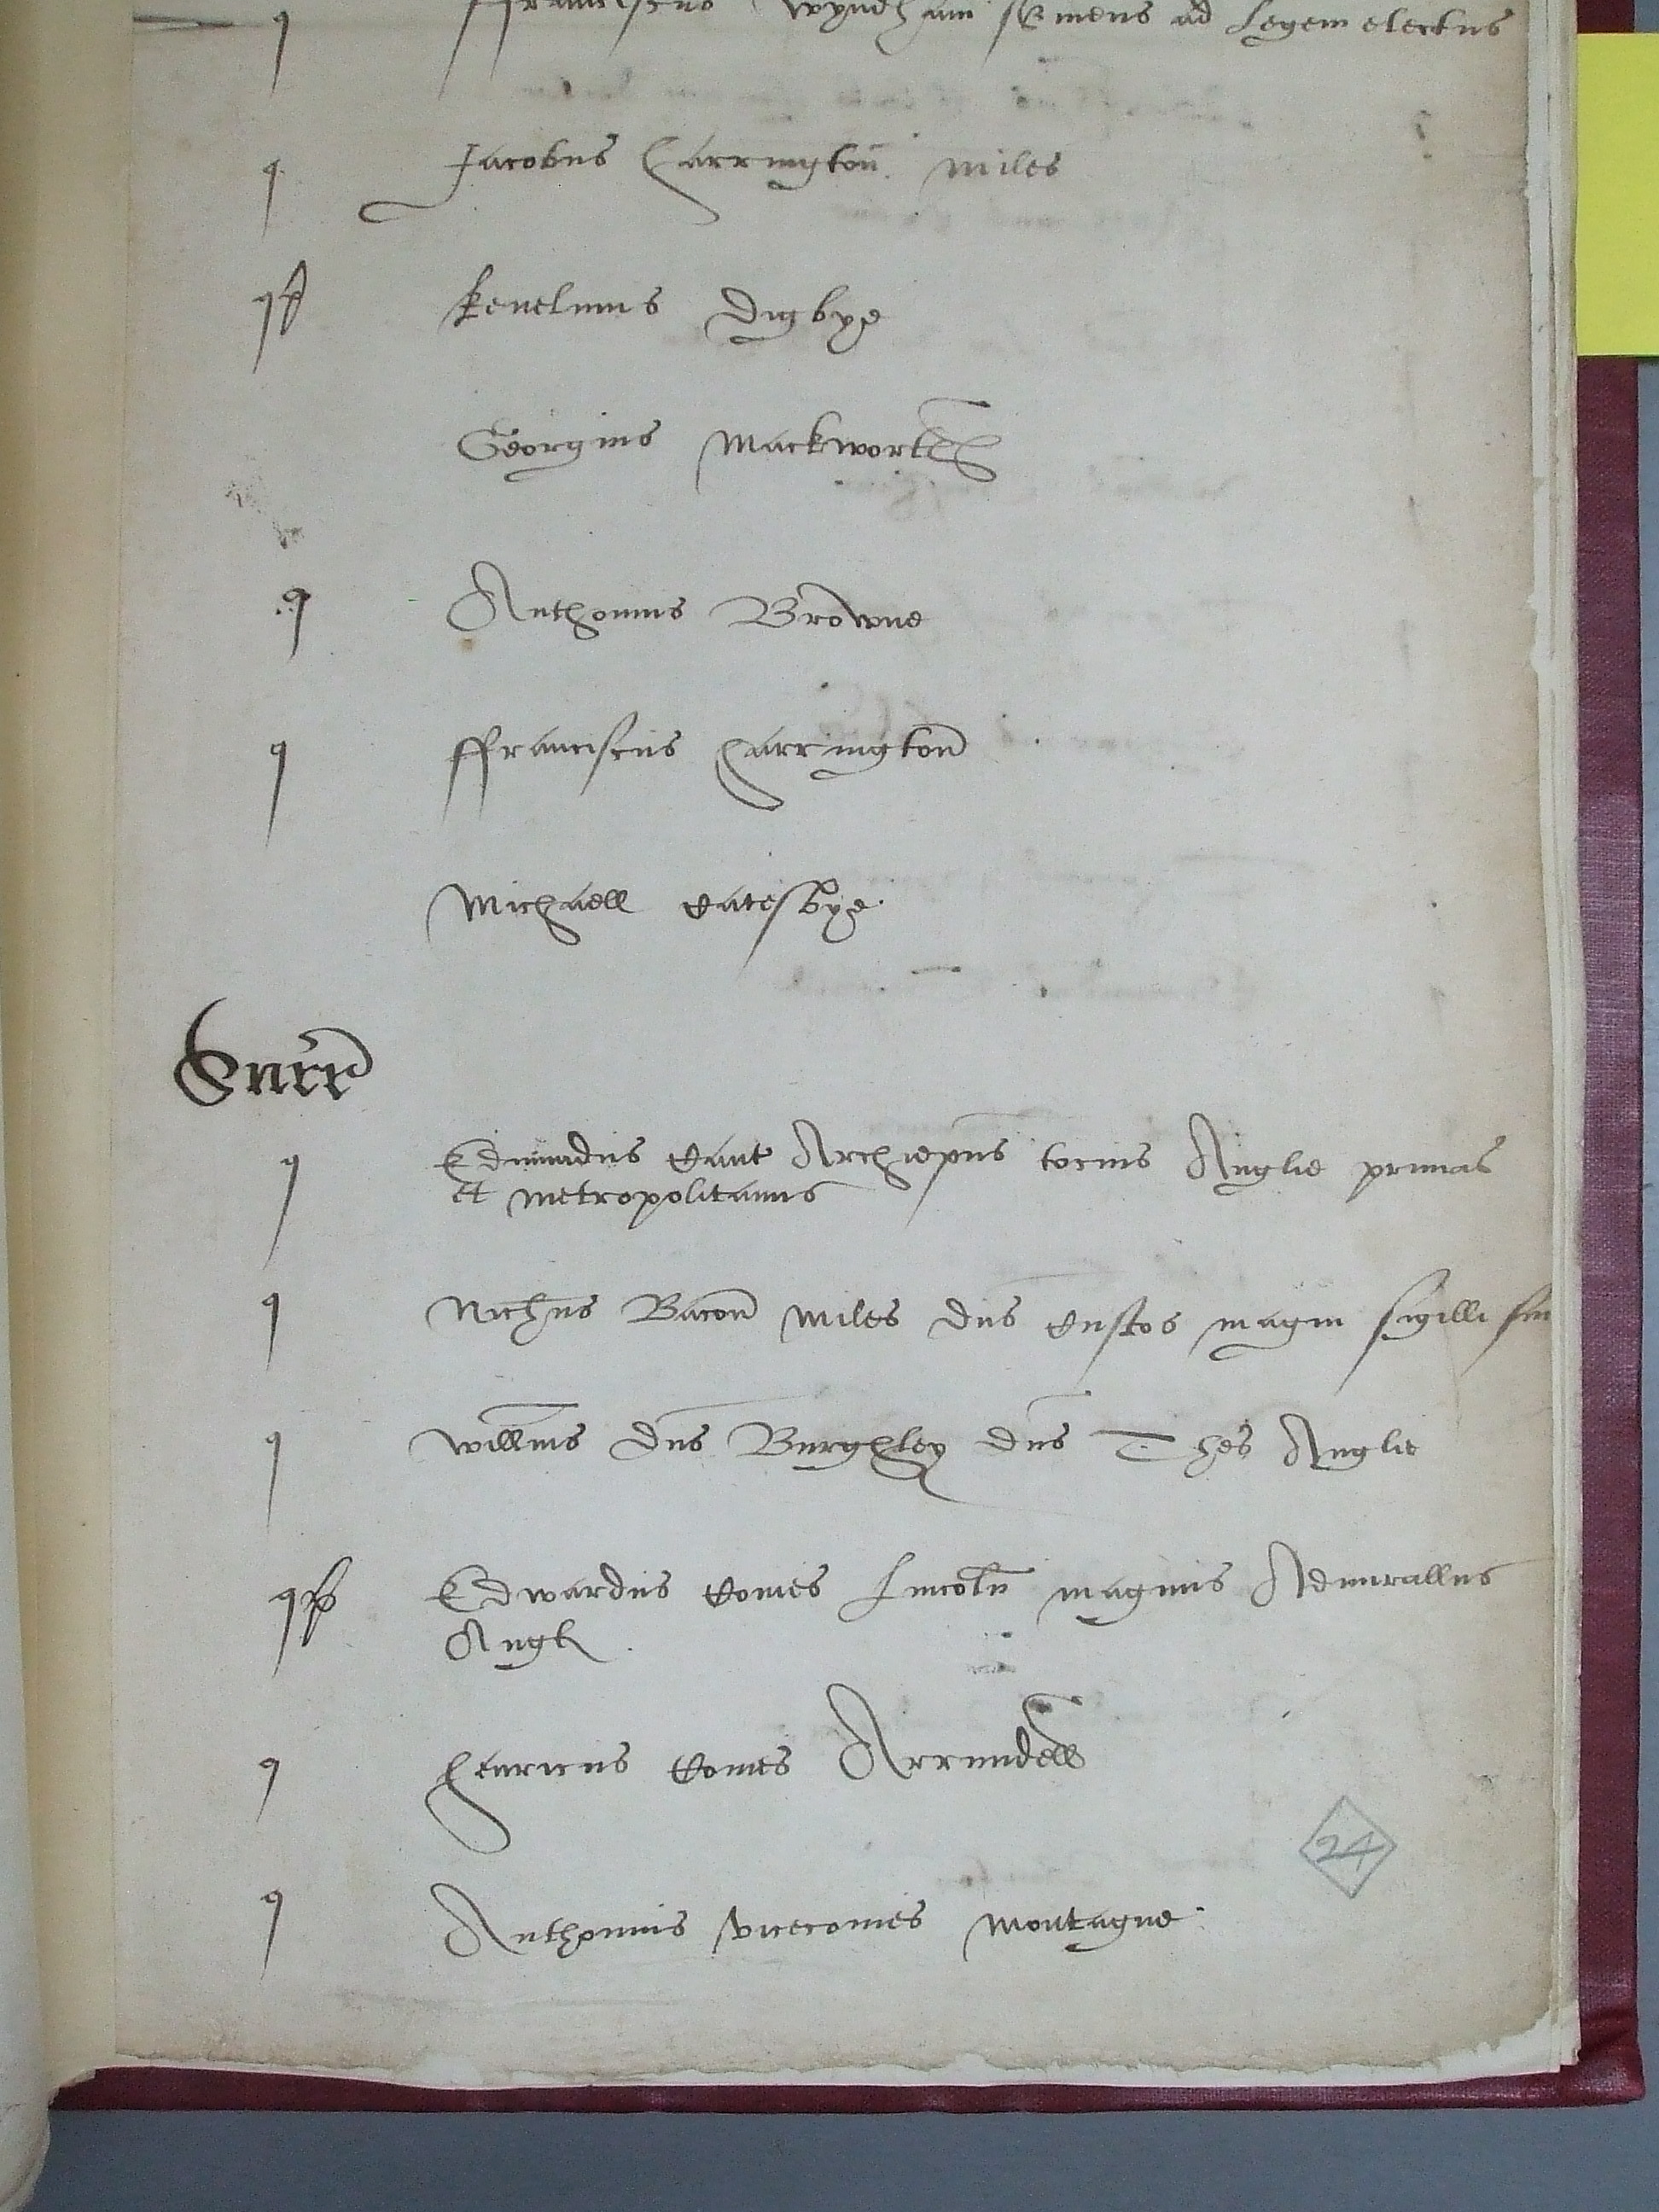 q ffranciscus Wyndham s'viens ad Legem electus
q Jacobus Harrington miles
q Kenelmus Digbye
Georgius Mackworth
q Anthonius Browne
q ffranciscus Harrington
Michaell Catesbye
Surr
q Edmundus Cant Archiepus tocius Anglie primas
et metropolitanus
q Nichus Bacon miles dns Custos magni sigilli sui
q Willms dns Burghley dns Thes Anglie
q Edwardus Comes Lincoln magnus Admirallus
Angl
q Henricus Comes Arrundell
q Anthonius vicecomes Montague
24